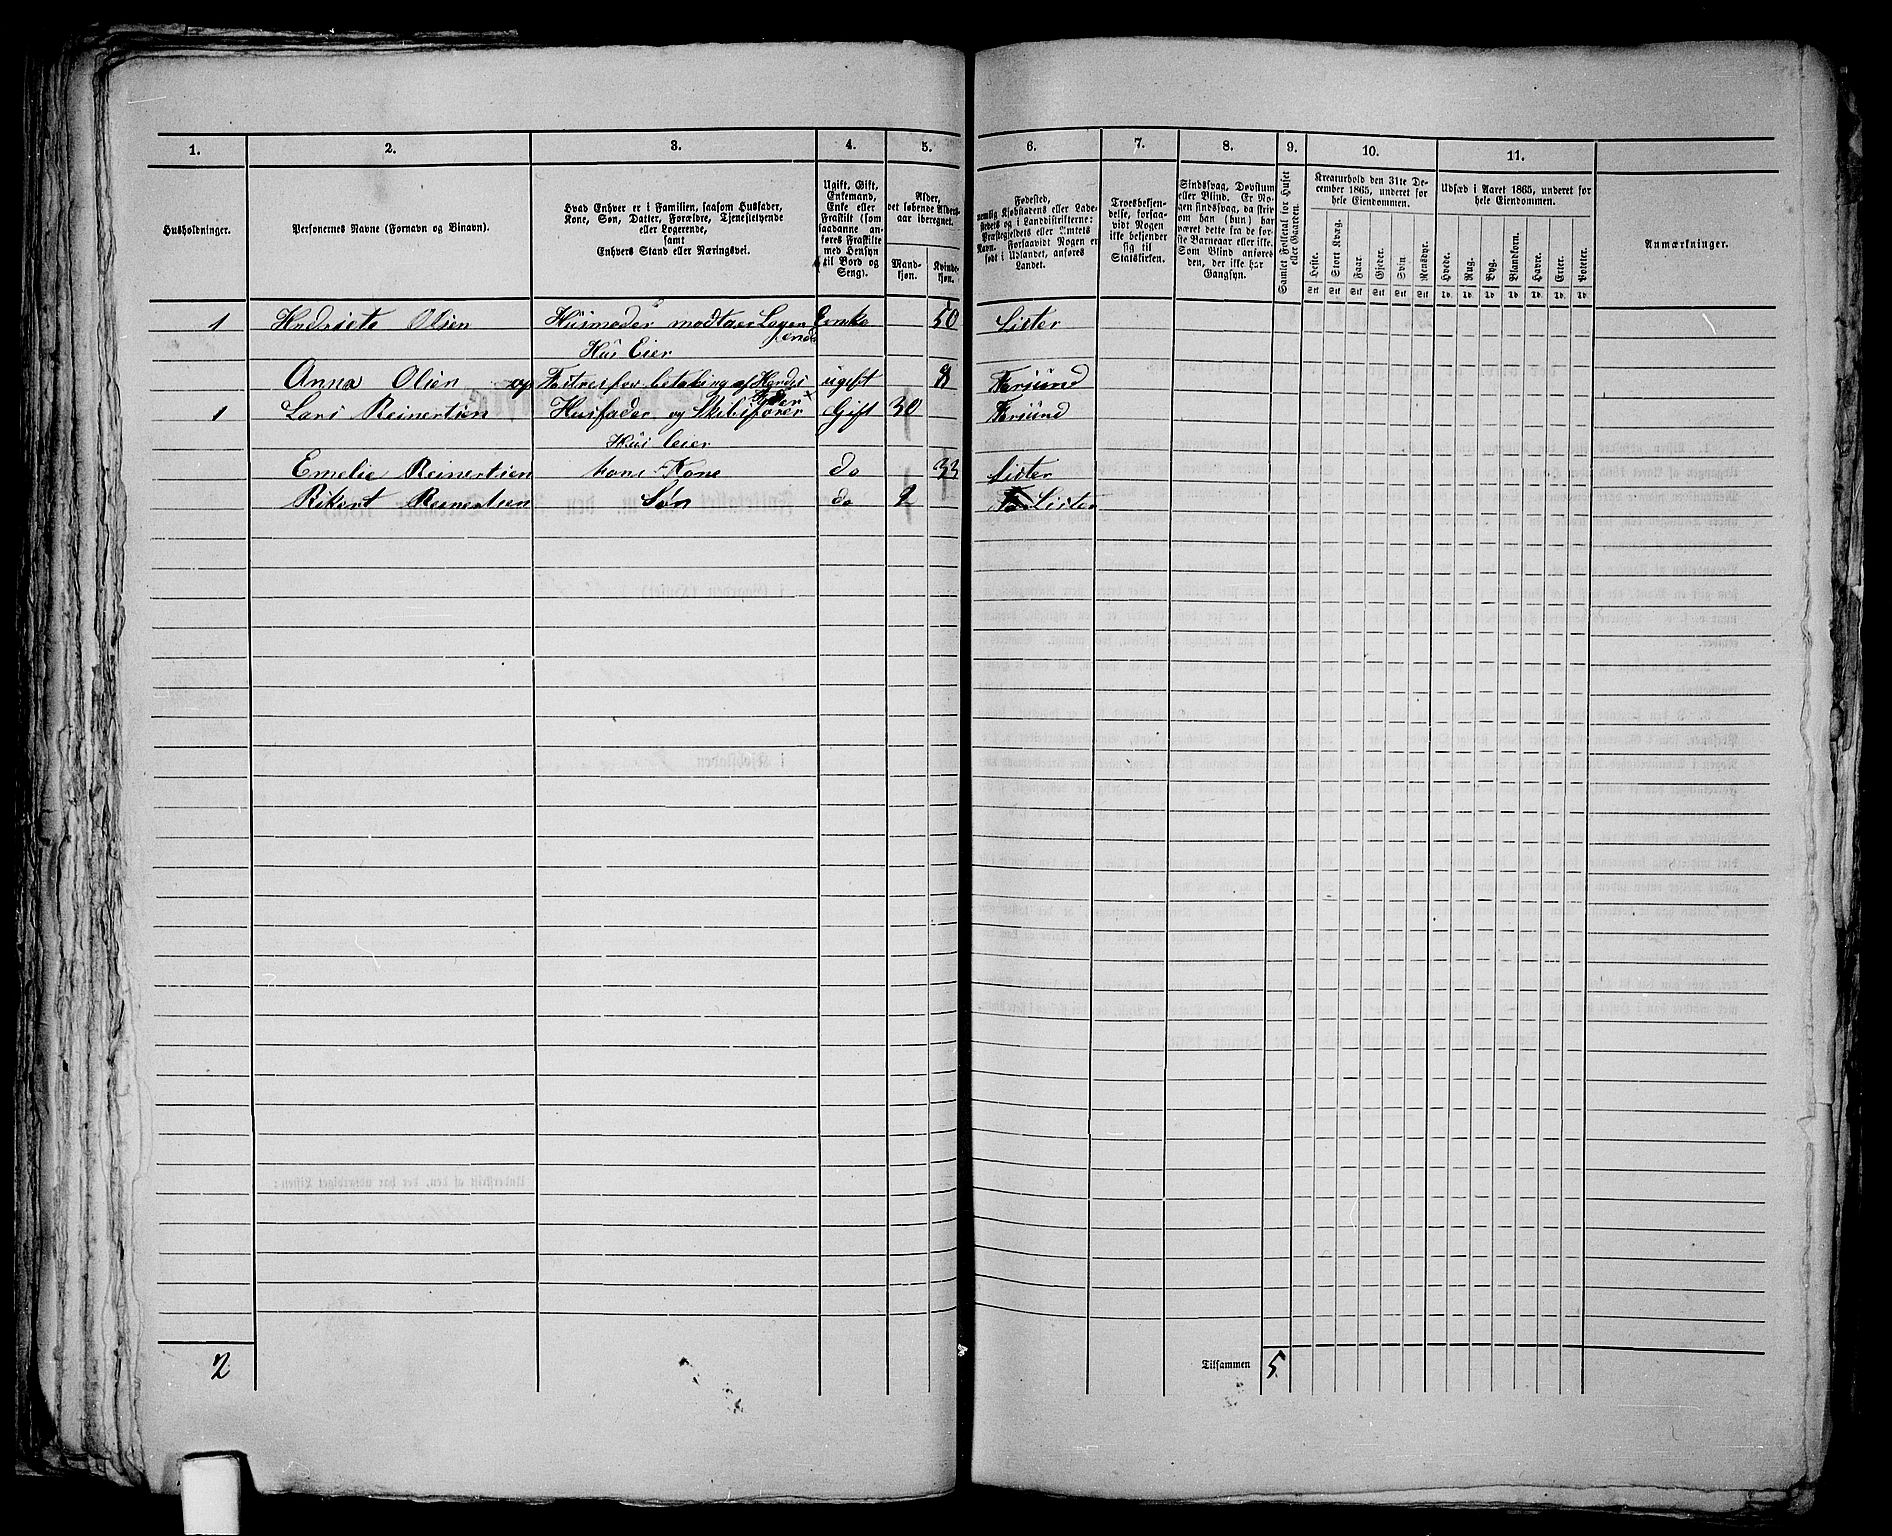 1. 2. 3. 4. 5. 6. 7. 8. 9. 10. 11.
Husholdninger.
Personernes Navne (Fornavn og Binavn).
Hvad Enhver er i Familien, saasom Husfader,
Kone, Søn, Datter, Forældre, Tjenestetyende
eller Logerende,
samt
Enhvers Stand eller Næringsvei.
Ugift, Gift,
Enkemand,
Enke eller
Fraskilt (som
saadanne an-
føres Fraskilte
med Hensyn
til Bord og
Seng).
Alder,
det løbende Alders-
aar iberegnet.
Mand-
kjøn.
Kvinde-
kjøn.
Fødested,
nemlig Kjøbstadens eller Lade-
stedets og i Landdistrikterne:
Præstegjeldets eller Amtets
Navn. Forsaavidt Nogen er
født i Udlandet, anføres
Landet.
Troesbekjen-
delse, forsaa-
vidt Nogen
ikke bekjender
sig til
Statskirken.
Sindssvag, Døvstum
eller Blind. Er No-
gen sindssvag, da skri-
ves om han (hun) har
været dette fra de før-
ste Barneaar eller ikke.
Som Blind anføres
den, der ikke har
Gangsyn.
Samlet Folketal for Huset
eller Gaarden.
Kreaturhold den 31te De-
cember 1865, underet for
hele Eiendommen.
Heste. Stort Kvæg. Faar. Gjeder. Svin. Rensdyr.
Stk Stk Stk Stk Stk Stk
Udsæd i Aaret 1865, underet for
hele Eiendommen.
Hvede. Rug. Byg. Blandkorn. Havre. Erter. Poteter.
Td. Td. Td. Td. Td. Td. Td.
Anmærkninger.
1 Hedriete Olsen Husmoder modtaer Logerende Enke 50 Lister
Hus Eier
Anna Olsen op Fostres for betaling af Hendes Fader ugift 8 Farsund
1 Lars Reinertsen Husfader og Skibsfører Gift 30 Farsund
Hus Eier
Emelie Reinertsen hans Kone do 33 Lister
Rikert Reinertsen Søn do 2 Lister
2 Tilsammen 5